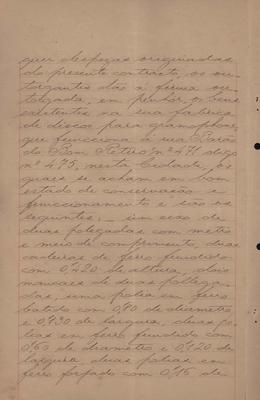 quer despezas originadas
do presente contracto, os ou-
torgantes dão á firma ou-
torgada, em penhor, os bens
existentes na sua fabrica
de discos para gramophone,
que funcciona á rua Barão
do Bom Retiro nº 471 digo
nº 475, nesta Cidade, os
quaes se acham em bom
estado de conservação e
funccionamento e são os
seguintes: um eixo de
duas pollegadas com metro
e meio de comprimento, duas
cadeiras de ferro fundido
com 0,420 de altura, dois
mancaes de duas pollega-
das, uma polia em ferro
batido com 0,90 de diametro
e 0,130 de largura, duas po-
lias em ferro fundido com
0,65 de diametro e 0,120 de
largura duas polias em
ferro forjado com 0,45 de